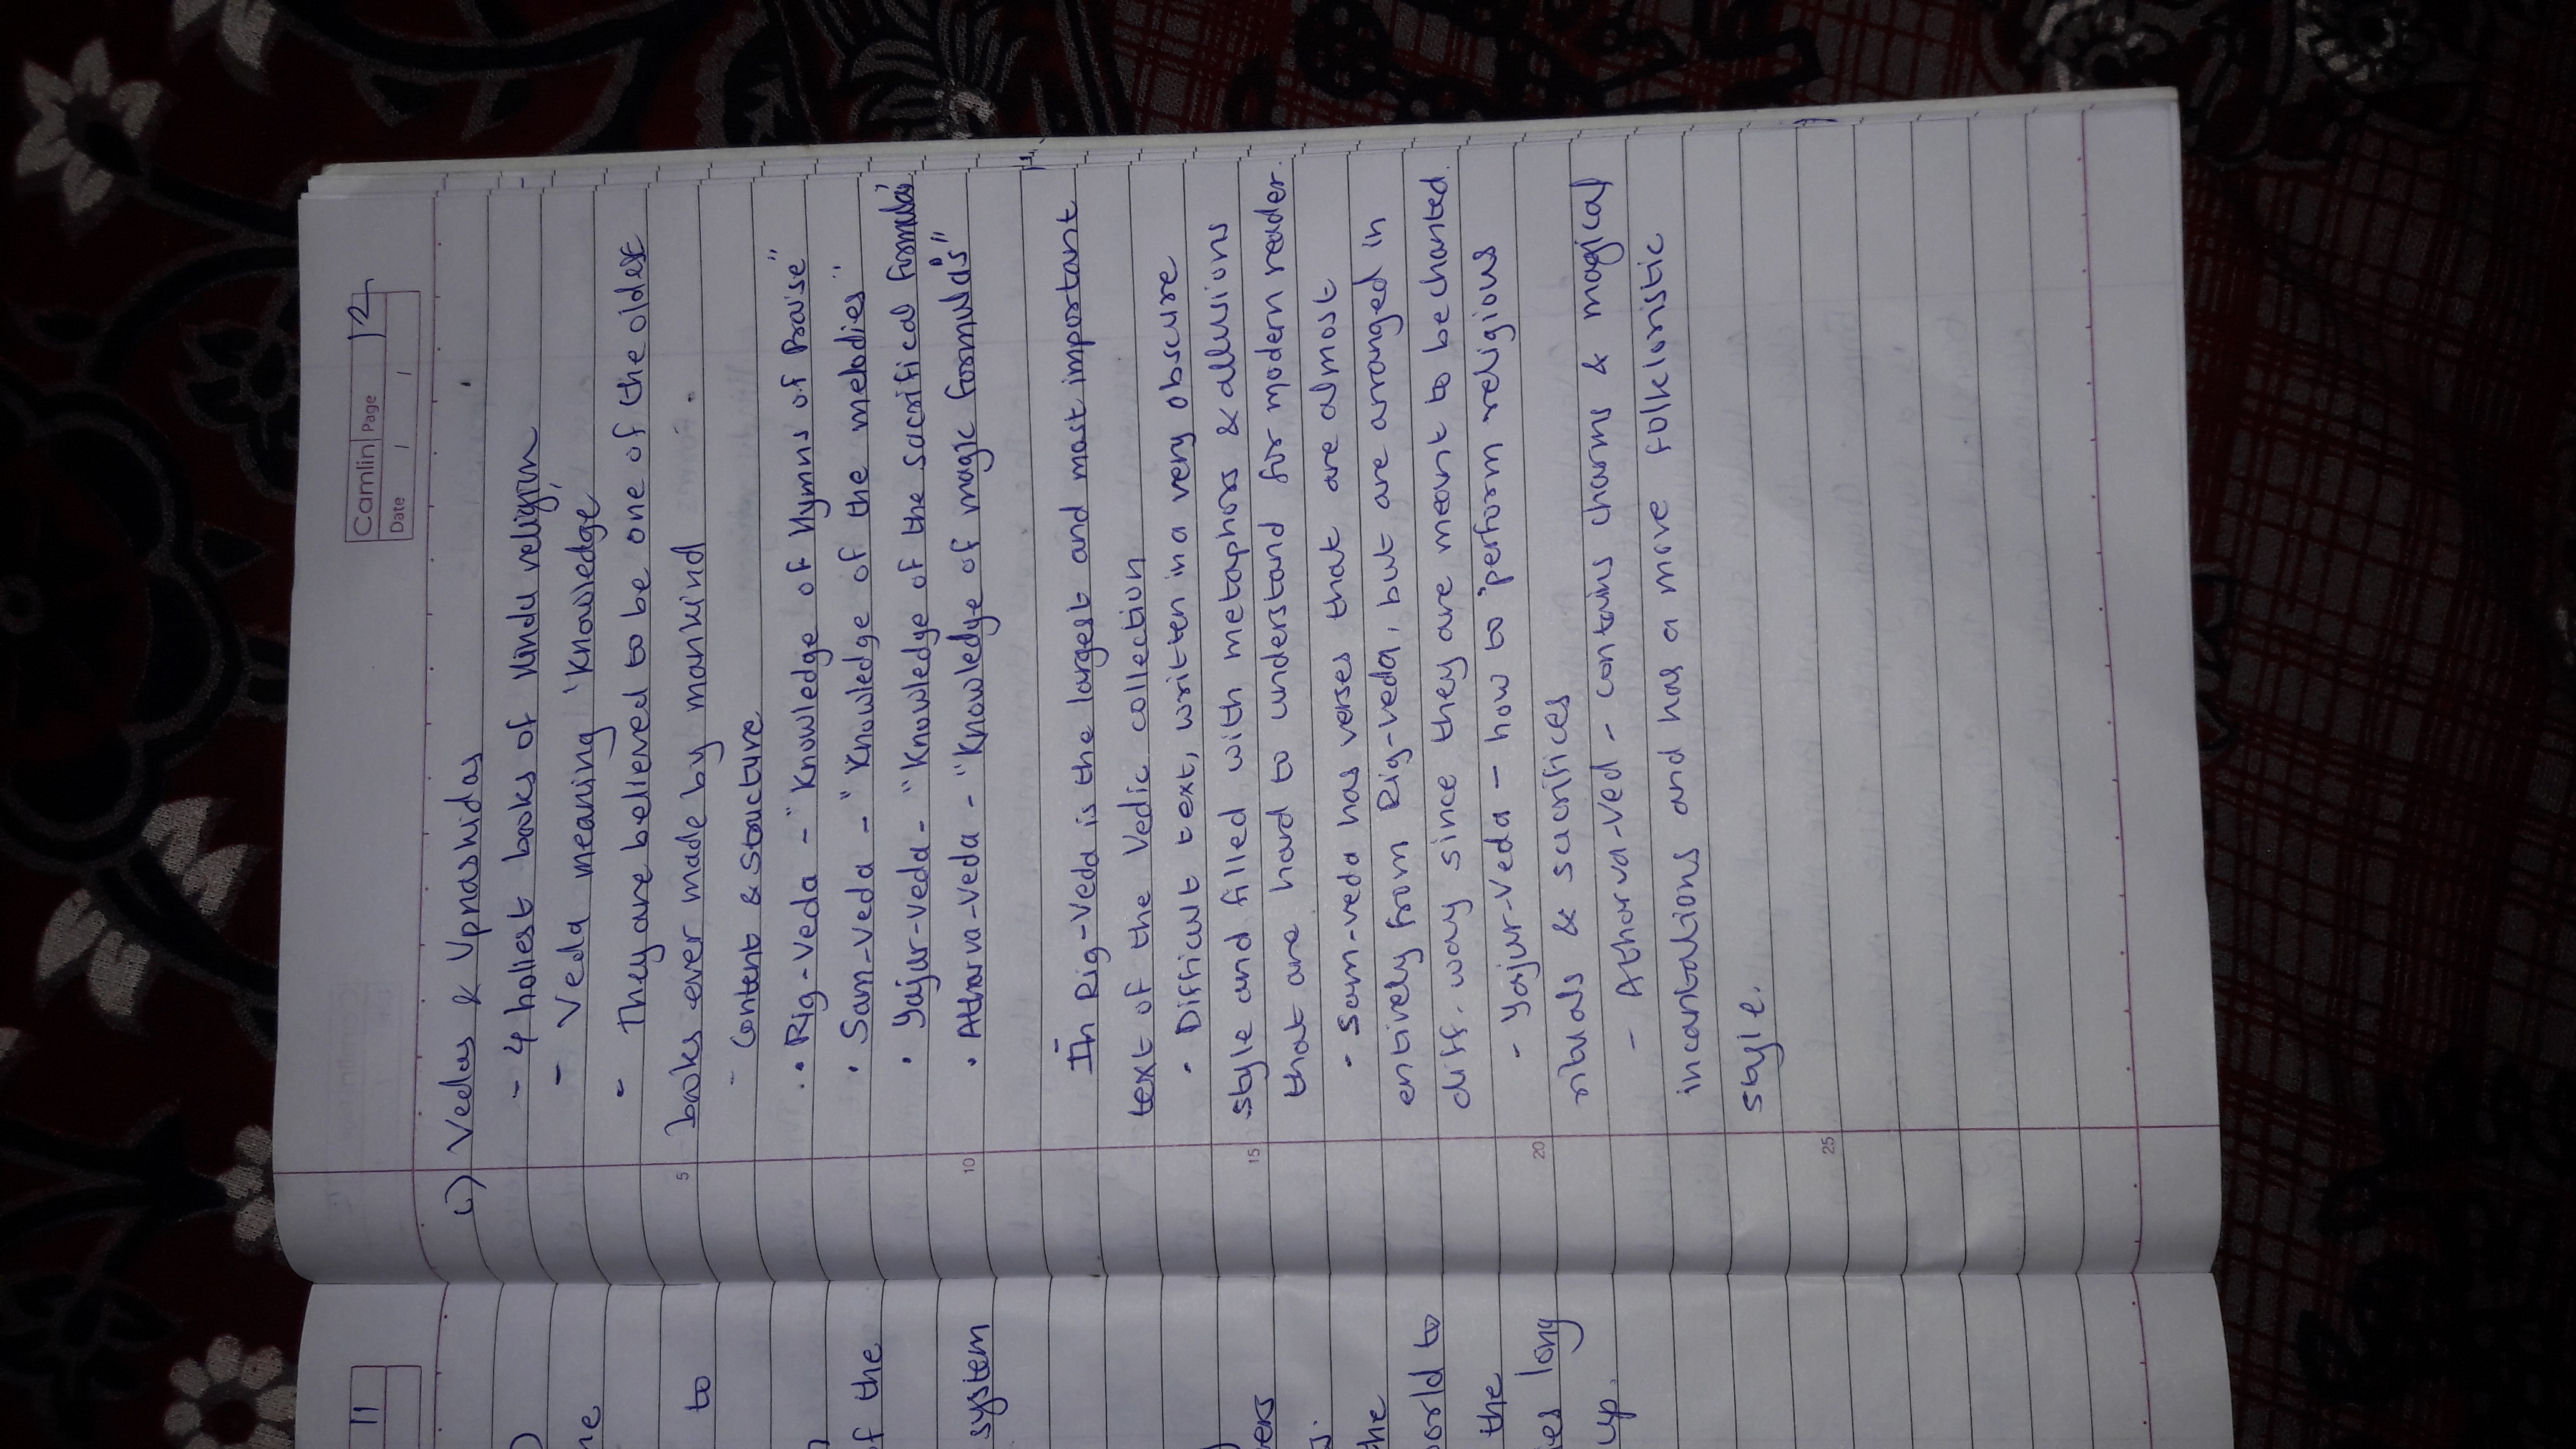 11
Camlin Page 12
Date / /
i) Vedas & Upnashidas
- 4 holiest books of Hindu religion
ne
- Veda meaning 'Knowledge'
- They are believed to be one of the oldest
to
5 books ever made by mankind
- Content & Structure
• Rig-Veda - "Knowledge of Hymns of Praise"
f the
• Sam-Veda - "Knowledge of the melodies"
• Yajur-veda - "Knowledge of the sacrifical formulas"
system
10 • Atharva-Veda - "Knowledge of magic formula's"
- In Rig-Veda is the largest and most important
text of the Vedic collection
- Difficult text, written in a very obscure
ers
15 style and filled with metaphors & allusions
that are hard to understand for modern reader.
he
- Sam-veda has verses that are almost
entirely from Rig-veda, but are arranged in
orld to
diff. way since they are meant to be chanted.
the
- Yajur-Veda - how to perform religious
es long
20 rituals & sacrifices
up.
- Atharva-Ved - contains charms & magical
incantations and has a more folkloristic
style.
25